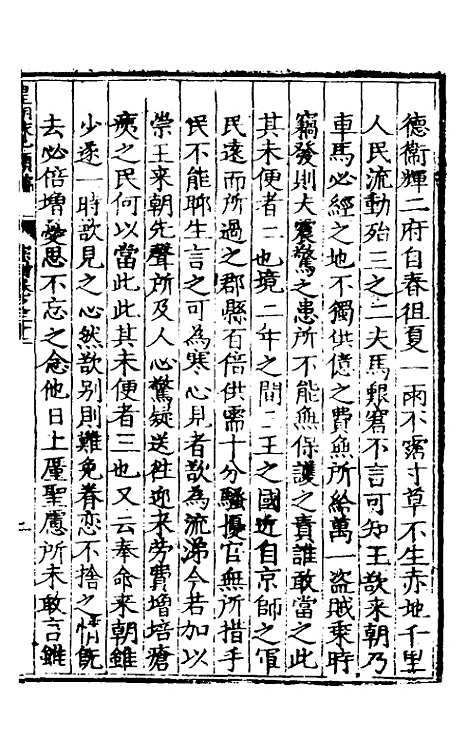 德衞輝二府自春徂夏一雨不霑寸草不生赤地千里
人民流動殆三之二夫馬艱窘不言可知王欲来朝乃
車馬必經之地不獨供億之費無所給萬一盗賊乘時
竊發則大震驚之患所不能無保護之責誰敢當之此
其未便者二也境二年之間二王之國近自京師之軍
民遠而所過之郡縣百倍供需十分騷擾官無所措手
民不能聊生言之可為寒心見者欲為流涕今若加以
崇王来朝先聲所及人心驚疑送徃迎来劳費增培瘡
痍之民何以當此此其未便者三也又云奉命来朝雖
少遂一時欲見之心然欲别則難免眷恋不捨之情既
去必倍增憂思不忘之念他日上厪聖慮所未敢言雖
皇明
二